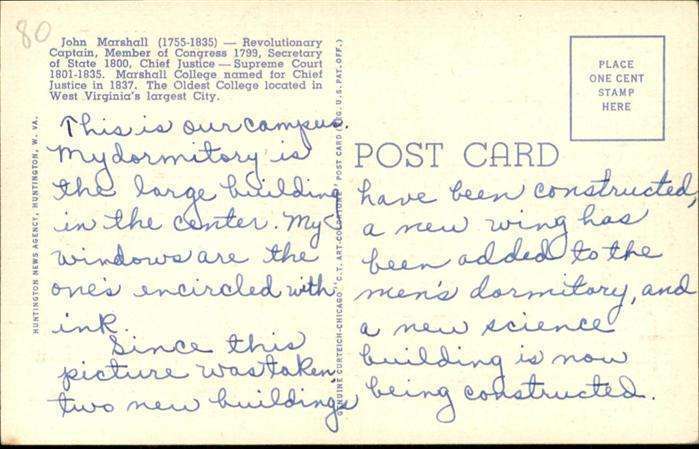 80
John Marshall (1755-1835) — Revolutionary
Captain, Member of Congress 1799, Secretary
of State 1800, Chief Justice — Supreme Court
1801-1835. Marshall College named for Chief
Justice in 1837. The Oldest College located in
West Virginia's largest City.
This is our campus.
My dormitory is
the large building
in the center. My
windows are the
one's encircled with
ink.
Since this
picture was taken
two new buildings
HUNTINGTON NEWS AGENCY, HUNTINGTON, W. VA.
GENUINE CURTEICH-CHICAGO "C.T. ART-COLORTONE" POST CARD (REG. U.S. PAT. OFF.)
PLACE
ONE CENT
STAMP
HERE
POST CARD
have been constructed,
a new wing has
been added to the
men's dormitory, and
a new science
building is now
being constructed.